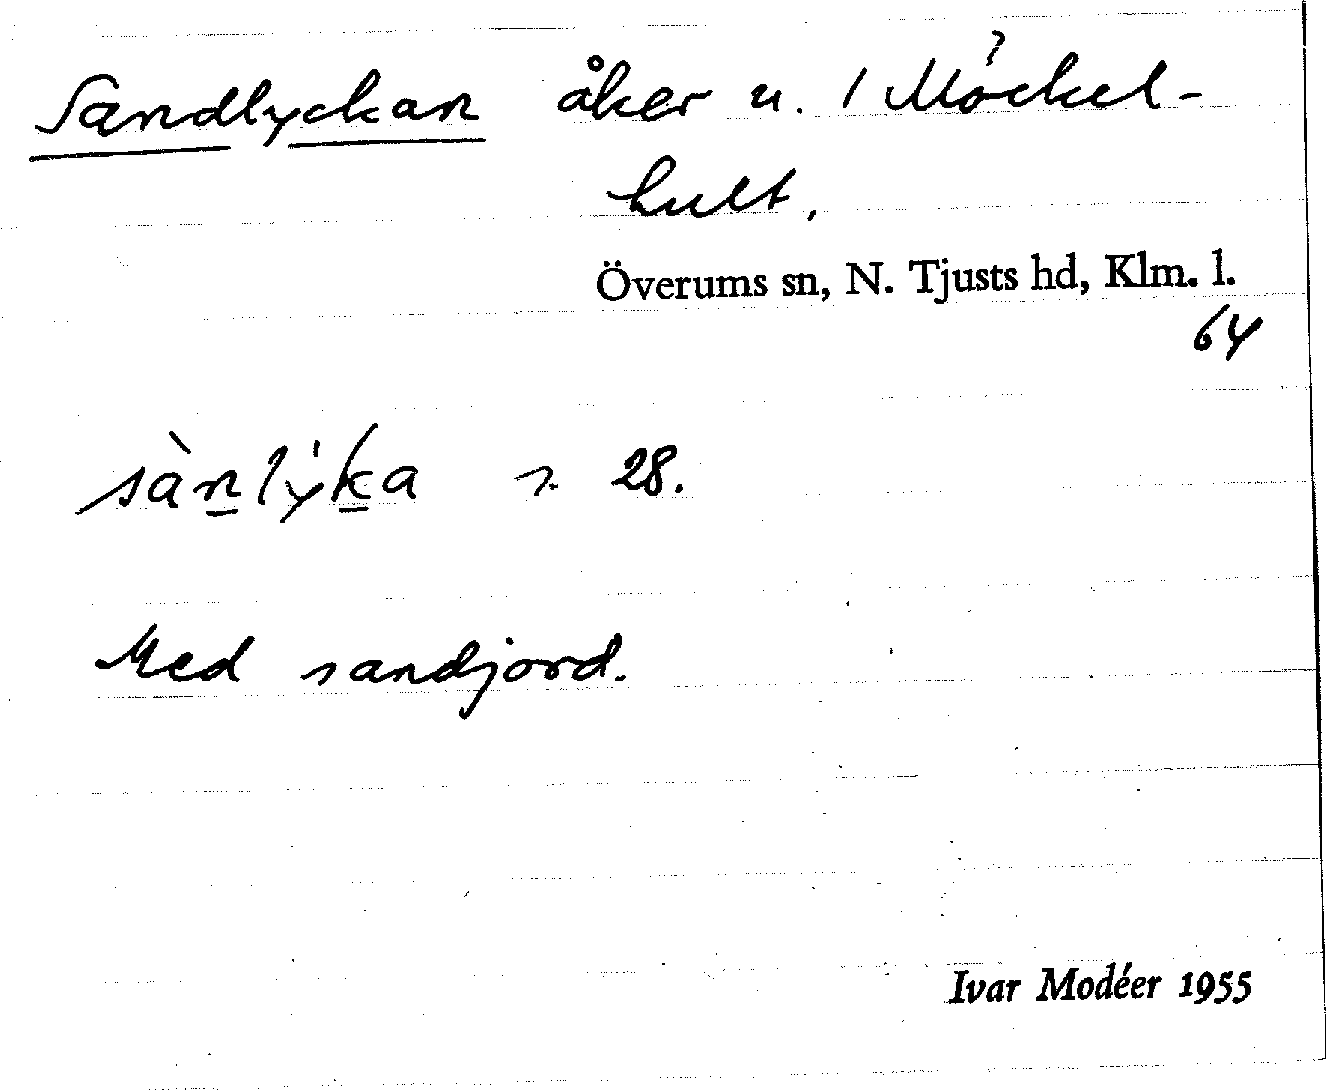 Sandlyckan åker u. 1 Möckel-
hult.
Överums sn, N. Tjusts hd, Klm. l.
64
sànlýka s. 28.
Med sandjord.
Ivar Modéer 1955